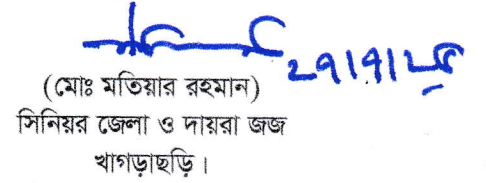 ২৭/৭/২৫
(মোঃ মতিয়ার রহমান)
সিনিয়র জেলা ও দায়রা জজ
খাগড়াছড়ি।